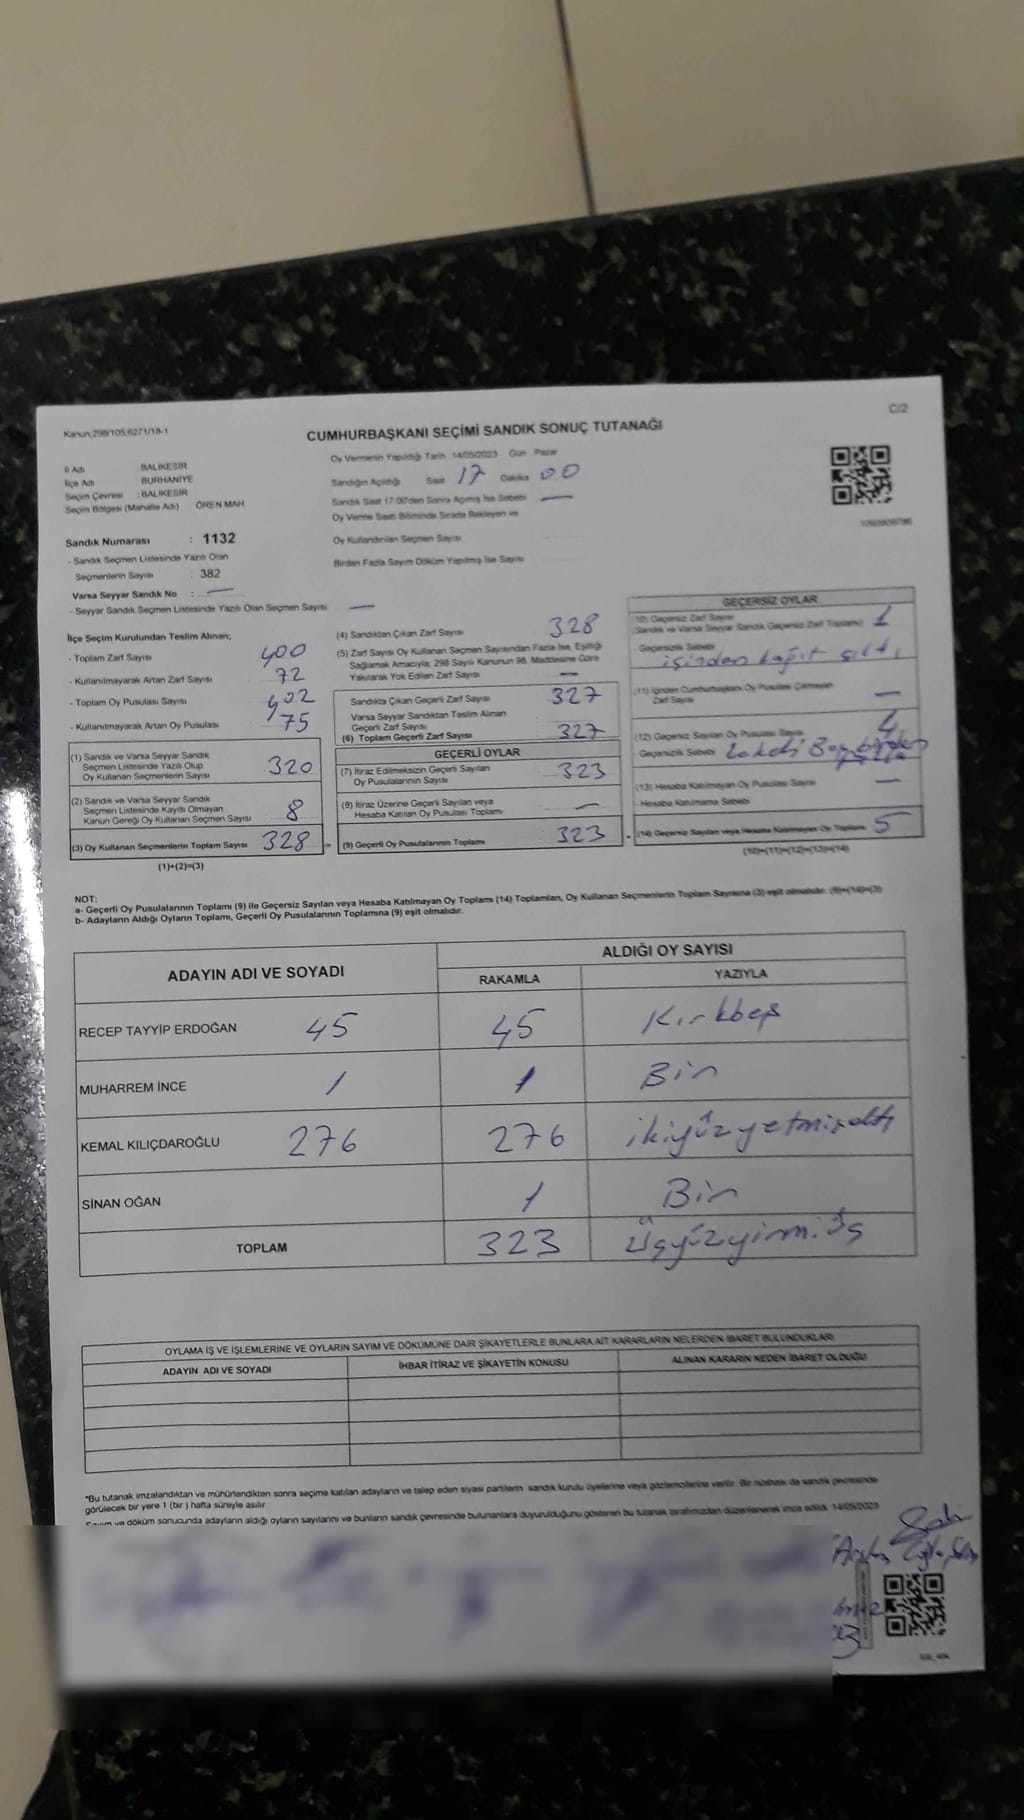 C/2
Kanun:298/105,6271/18-1
CUMHURBAŞKANI SEÇİMİ SANDIK SONUÇ TUTANAĞI
İl Adı BALIKESİR
İlçe Adı BURHANİYE
Seçim Çevresi : BALIKESİR
Seçim Bölgesi (Mahalle Adı) ÖREN MAH.
Oy Vermenin Yapıldığı Tarih 14/05/2023 Gün Pazar
Sandığın Açıldığı Saat 17 Dakika 00
Sandık Saat 17:00'den Sonra Açılmış İse Sebebi —
Oy Verme Saati Bitiminde Sırada Bekleyen ve
Oy Kullandırılan Seçmen Sayısı
Birden Fazla Sayım Döküm Yapılmış İse Sayısı
Sandık Numarası : 1132
- Sandık Seçmen Listesinde Yazılı Olan
Seçmenlerin Sayısı : 382
Varsa Seyyar Sandık No : —
- Seyyar Sandık Seçmen Listesinde Yazılı Olan Seçmen Sayısı —
İlçe Seçim Kurulundan Teslim Alınan;
- Toplam Zarf Sayısı 400
- Kullanılmayarak Artan Zarf Sayısı 72
- Toplam Oy Pusulası Sayısı 402
- Kullanılmayarak Artan Oy Pusulası 75
(1) Sandık ve Varsa Seyyar Sandık
Seçmen Listesinde Yazılı Olup
Oy Kullanan Seçmenlerin Sayısı 320
(2) Sandık ve Varsa Seyyar Sandık
Seçmen Listesinde Kayıtlı Olmayan
Kanun Gereği Oy Kullanan Seçmen Sayısı 8
(3) Oy Kullanan Seçmenlerin Toplam Sayısı 328 =
(1)+(2)=(3)
(4) Sandıktan Çıkan Zarf Sayısı 328
(5) Zarf Sayısı Oy Kullanan Seçmen Sayısından Fazla İse, Eşitliği
Sağlamak Amacıyla, 298 Sayılı Kanunun 98. Maddesine Göre
Yakılarak Yok Edilen Zarf Sayısı —
Sandıkta Çıkan Geçerli Zarf Sayısı 327
Varsa Seyyar Sandıktan Teslim Alınan
Geçerli Zarf Sayısı
(6) Toplam Geçerli Zarf Sayısı 327
GEÇERLİ OYLAR
(7) İtiraz Edilmeksizin Geçerli Sayılan
Oy Pusulalarının Sayısı 323
(8) İtiraz Üzerine Geçerli Sayılan veya
Hesaba Katılan Oy Pusulası Toplamı —
(9) Geçerli Oy Pusulalarının Toplamı 323 +
GEÇERSİZ OYLAR
(10) Geçersiz Zarf Sayısı
(Sandık ve Varsa Seyyar Sandık Geçersiz Zarf Toplamı) 1
Geçersizlik Sebebi
içinden kağıt çıktı
(11) İçinden Cumhurbaşkanı Oy Pusulası Çıkmayan
Zarf Sayısı —
(12) Geçersiz Sayılan Oy Pusulası Sayısı 4
Geçersizlik Sebebi
(13) Hesaba Katılmayan Oy Pusulası Sayısı —
Hesaba Katılmama Sebebi
(14) Geçersiz Sayılan veya Hesaba Katılmayan Oy Toplamı 5
(10)+(11)+(12)+(13)=(14)
NOT:
a- Geçerli Oy Pusulalarının Toplamı (9) ile Geçersiz Sayılan veya Hesaba Katılmayan Oy Toplamı (14) Toplamları, Oy Kullanan Seçmenlerin Toplam Sayısına (3) eşit olmalıdır. (9)+(14)=(3)
b- Adayların Aldığı Oyların Toplamı, Geçerli Oy Pusulalarının Toplamına (9) eşit olmalıdır.
ADAYIN ADI VE SOYADI ALDIĞI OY SAYISI
RAKAMLA YAZIYLA
RECEP TAYYİP ERDOĞAN 45 45 Kırkbeş
MUHARREM İNCE 1 1 Bir
KEMAL KILIÇDAROĞLU 276 276 ikiyüzyetmişaltı
SİNAN OĞAN 1 Bir
TOPLAM 323 Üçyüzyirmiüç
OYLAMA İŞ VE İŞLEMLERİNE VE OYLARIN SAYIM VE DÖKÜMÜNE DAİR ŞİKAYETLERLE BUNLARA AİT KARARLARIN NELERDEN İBARET BULUNDUKLARI
ADAYIN ADI VE SOYADI İHBAR İTİRAZ VE ŞİKAYETİN KONUSU ALINAN KARARIN NEDEN İBARET OLDUĞU
*Bu tutanak imzalandıktan ve mühürlendikten sonra seçime katılan adayların ve talep eden siyasi partilerin sandık kurulu üyelerine veya gözlemcilerine verilir. Bir nüshası da sandık çevresinde
görülecek bir yere 1 (bir ) hafta süreyle asılır.
Sayım ve döküm sonucunda adayların aldığı oyların sayılarını ve bunların sandık çevresinde bulunanlara duyurulduğunu gösteren bu tutanak tarafımızdan düzenlenerek imza edildi. 14/05/2023